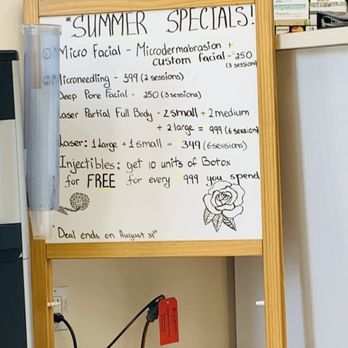 "SUMMER SPECIALS!
Micro Facial - Microdermabrasion +
custom Facial - 250
(3 sessions)
Microneedling - 599 (2 sessions)
Deep Pore Facial - 250 (3 sessions)
Laser Partial Full Body - 2 small + 2 medium
+ 2 large = 999 (6 session)
Laser: 1 large + 1 small = 349 (6 sessions)
Injectibles: get 10 units of Botox
for FREE for every 999 you spend
"Deal ends on August 31st